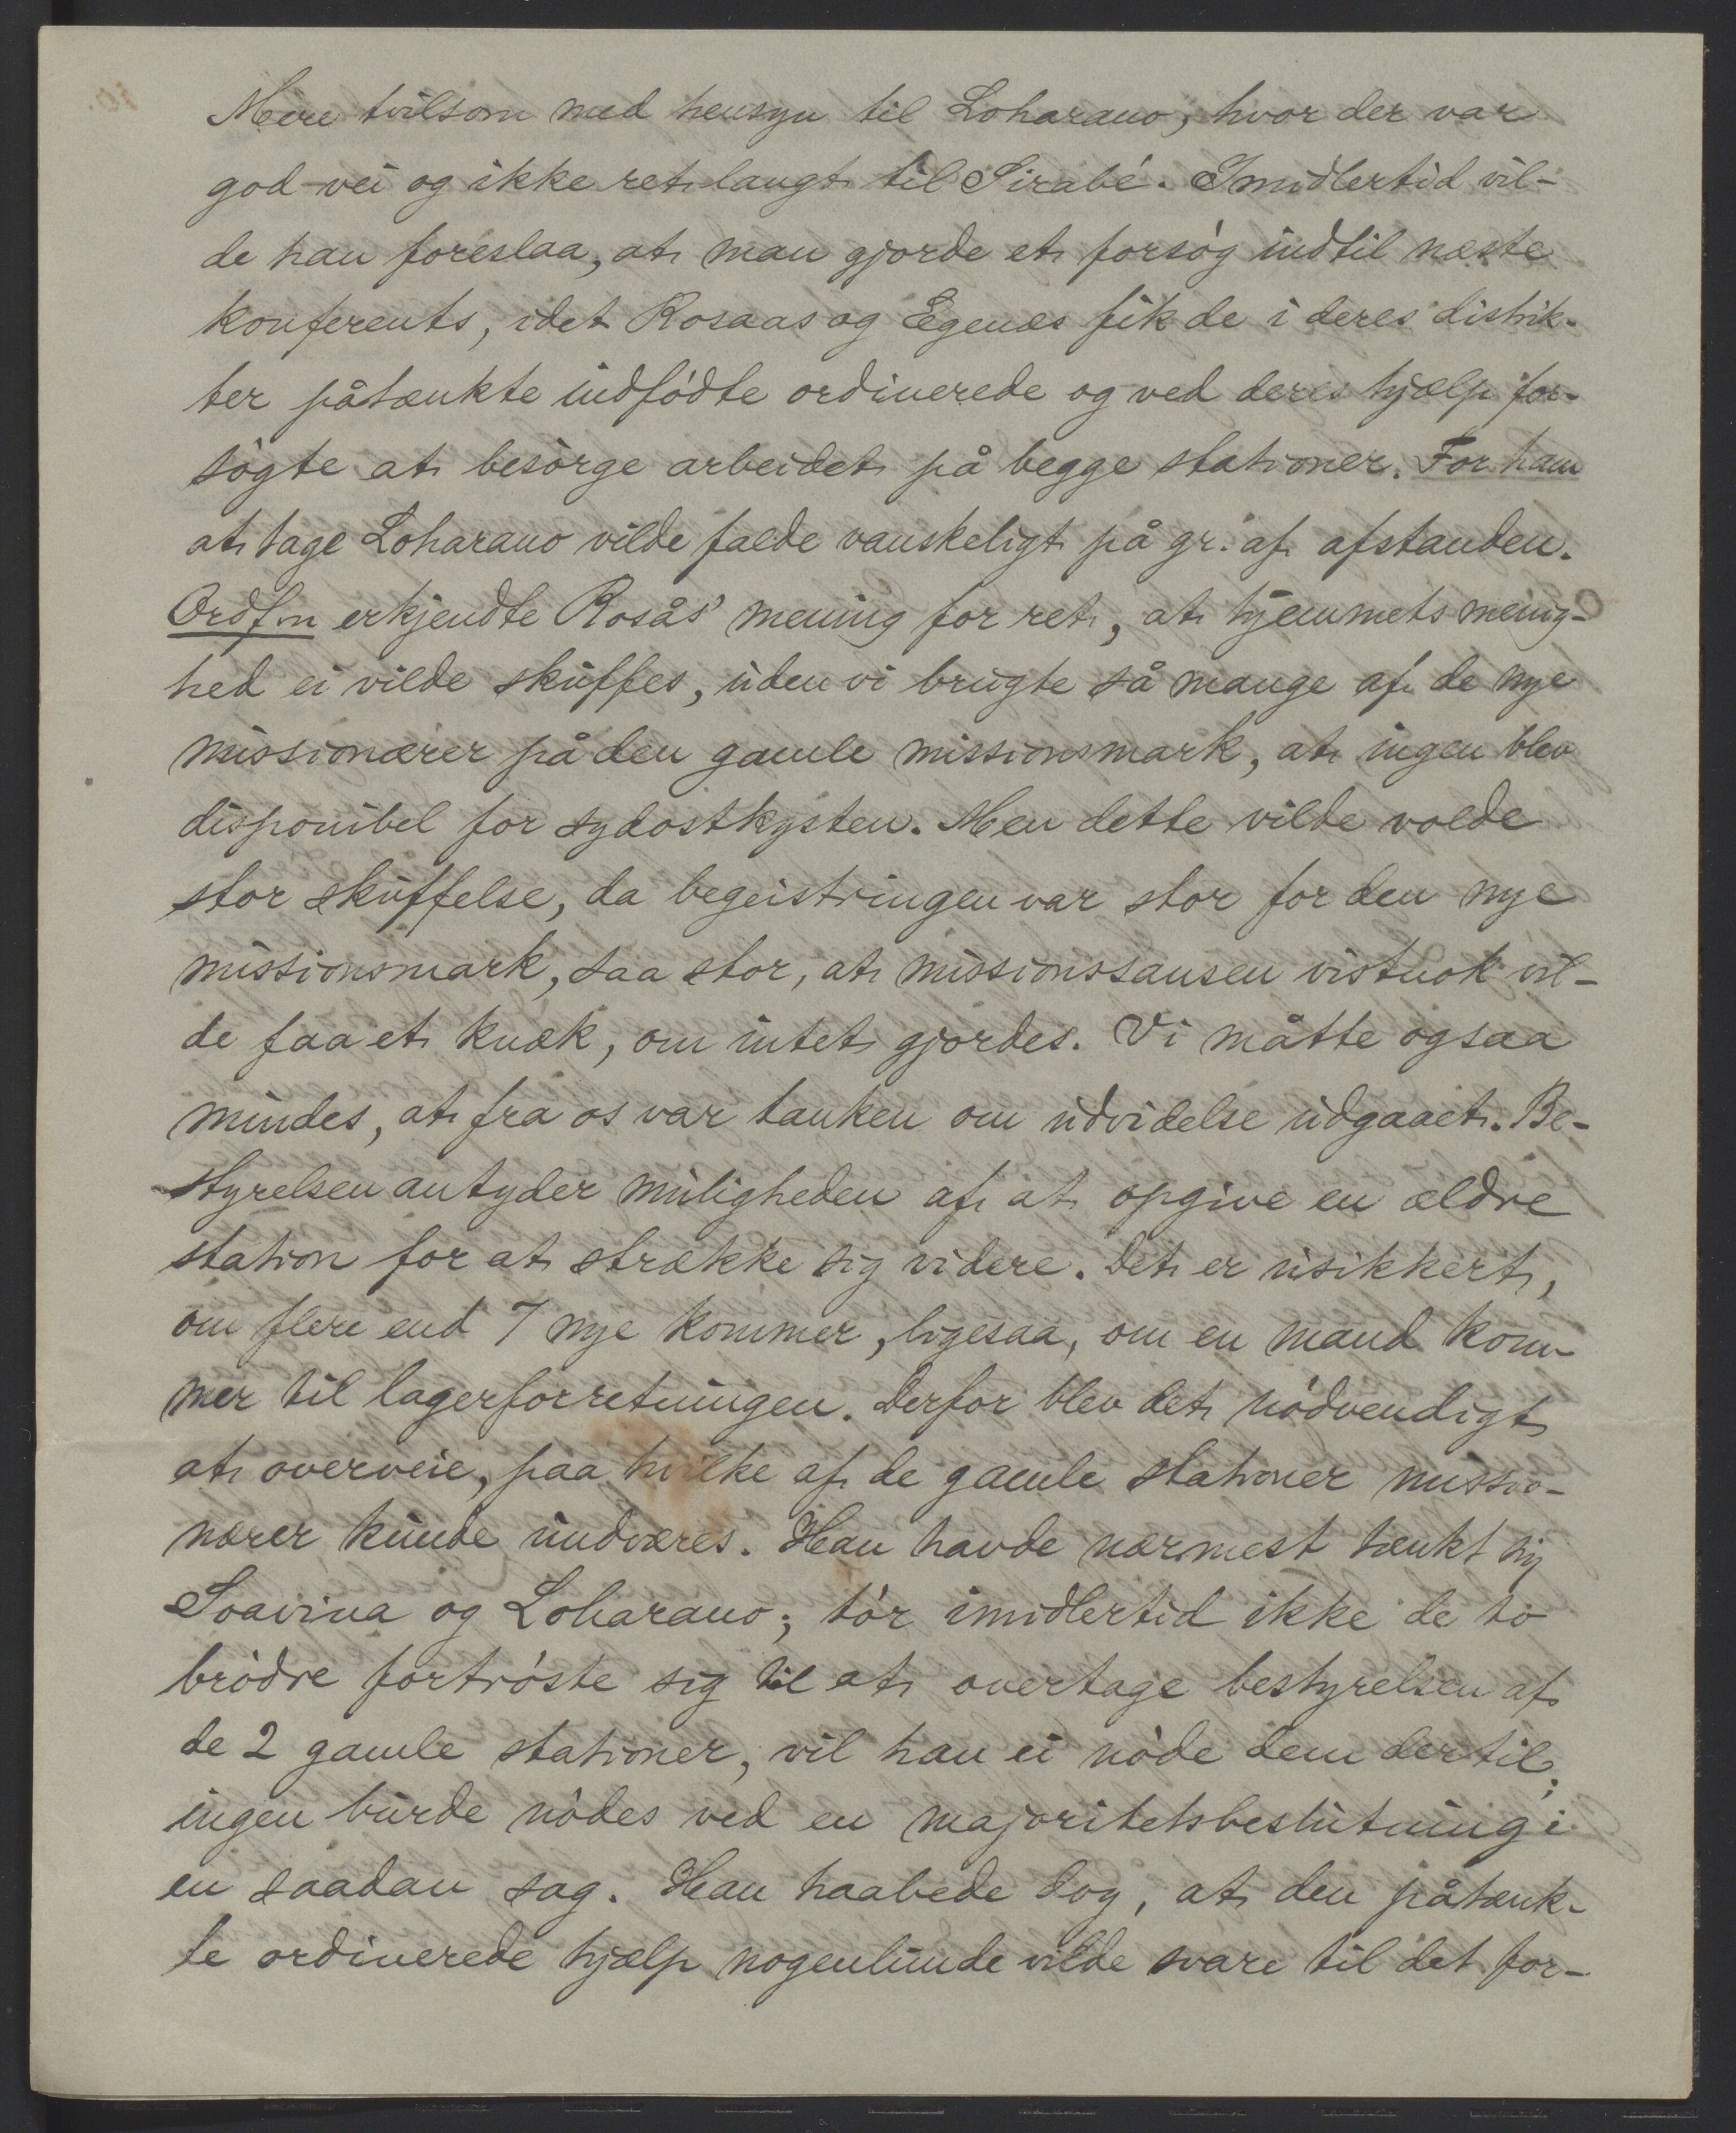 Mere tvilsom med hensyn til Loharano, hvor der var
god vei og ikke ret langt til Sirabé. Imidlertid vil-
de han foreslaa, at man gjorde et forsög indtil næste
konferents, idet Rosaas og Egenæs fik de i deres distrik-
ter påtænkte indfödte ordinerede og ved deres hjælp for-
sögte at besörge arbeidet på begge stationer. For ham
at tage Loharano vilde falde vanskeligt på gr. af afstanden.
Ordf.n erkjendte Rosås' mening for ret, at hjemmets menig-
hed ei vilde skuffes, uden vi brugte så mange af de nye
missionærer på den gamle missionsmark, at ingen blev
disponibel for sydostkysten. Men dette vilde volde
stor skuffelse, da begeistringen var stor for den nye
missionsmark, saa stor, at missionssansen vistnok vil-
de faa et knæk, om intet gjordes. Vi måtte ogsaa
mindes, at fra os var tanken om udvidelse udgaaet. Be-
styrelsen antyder muligheden af at opgive en ældre
station for at strække sig videre. Det er usikkert,
om flere end 7 nye kommer, ligesaa, om en mand kom-
mer til lagerforretningen. Derfor blev det nödvendigt
at overveie, paa hvilke af de gamle stationer missio-
nærer kunde undværes. Han havde nærmest tænkt sig
Soavina og Loharano; tör imidlertid ikke de to
brödre fortröste sig til at overtage bestyrelsen af
de 2 gamle stationer, vil han ei nöde dem dertil;
ingen burde nödes ved en majoritetsbeslutning i
en saadan sag. Han haabede dog, at den påtænk-
te ordinerede hjælp nogenlunde vilde svare til det for-